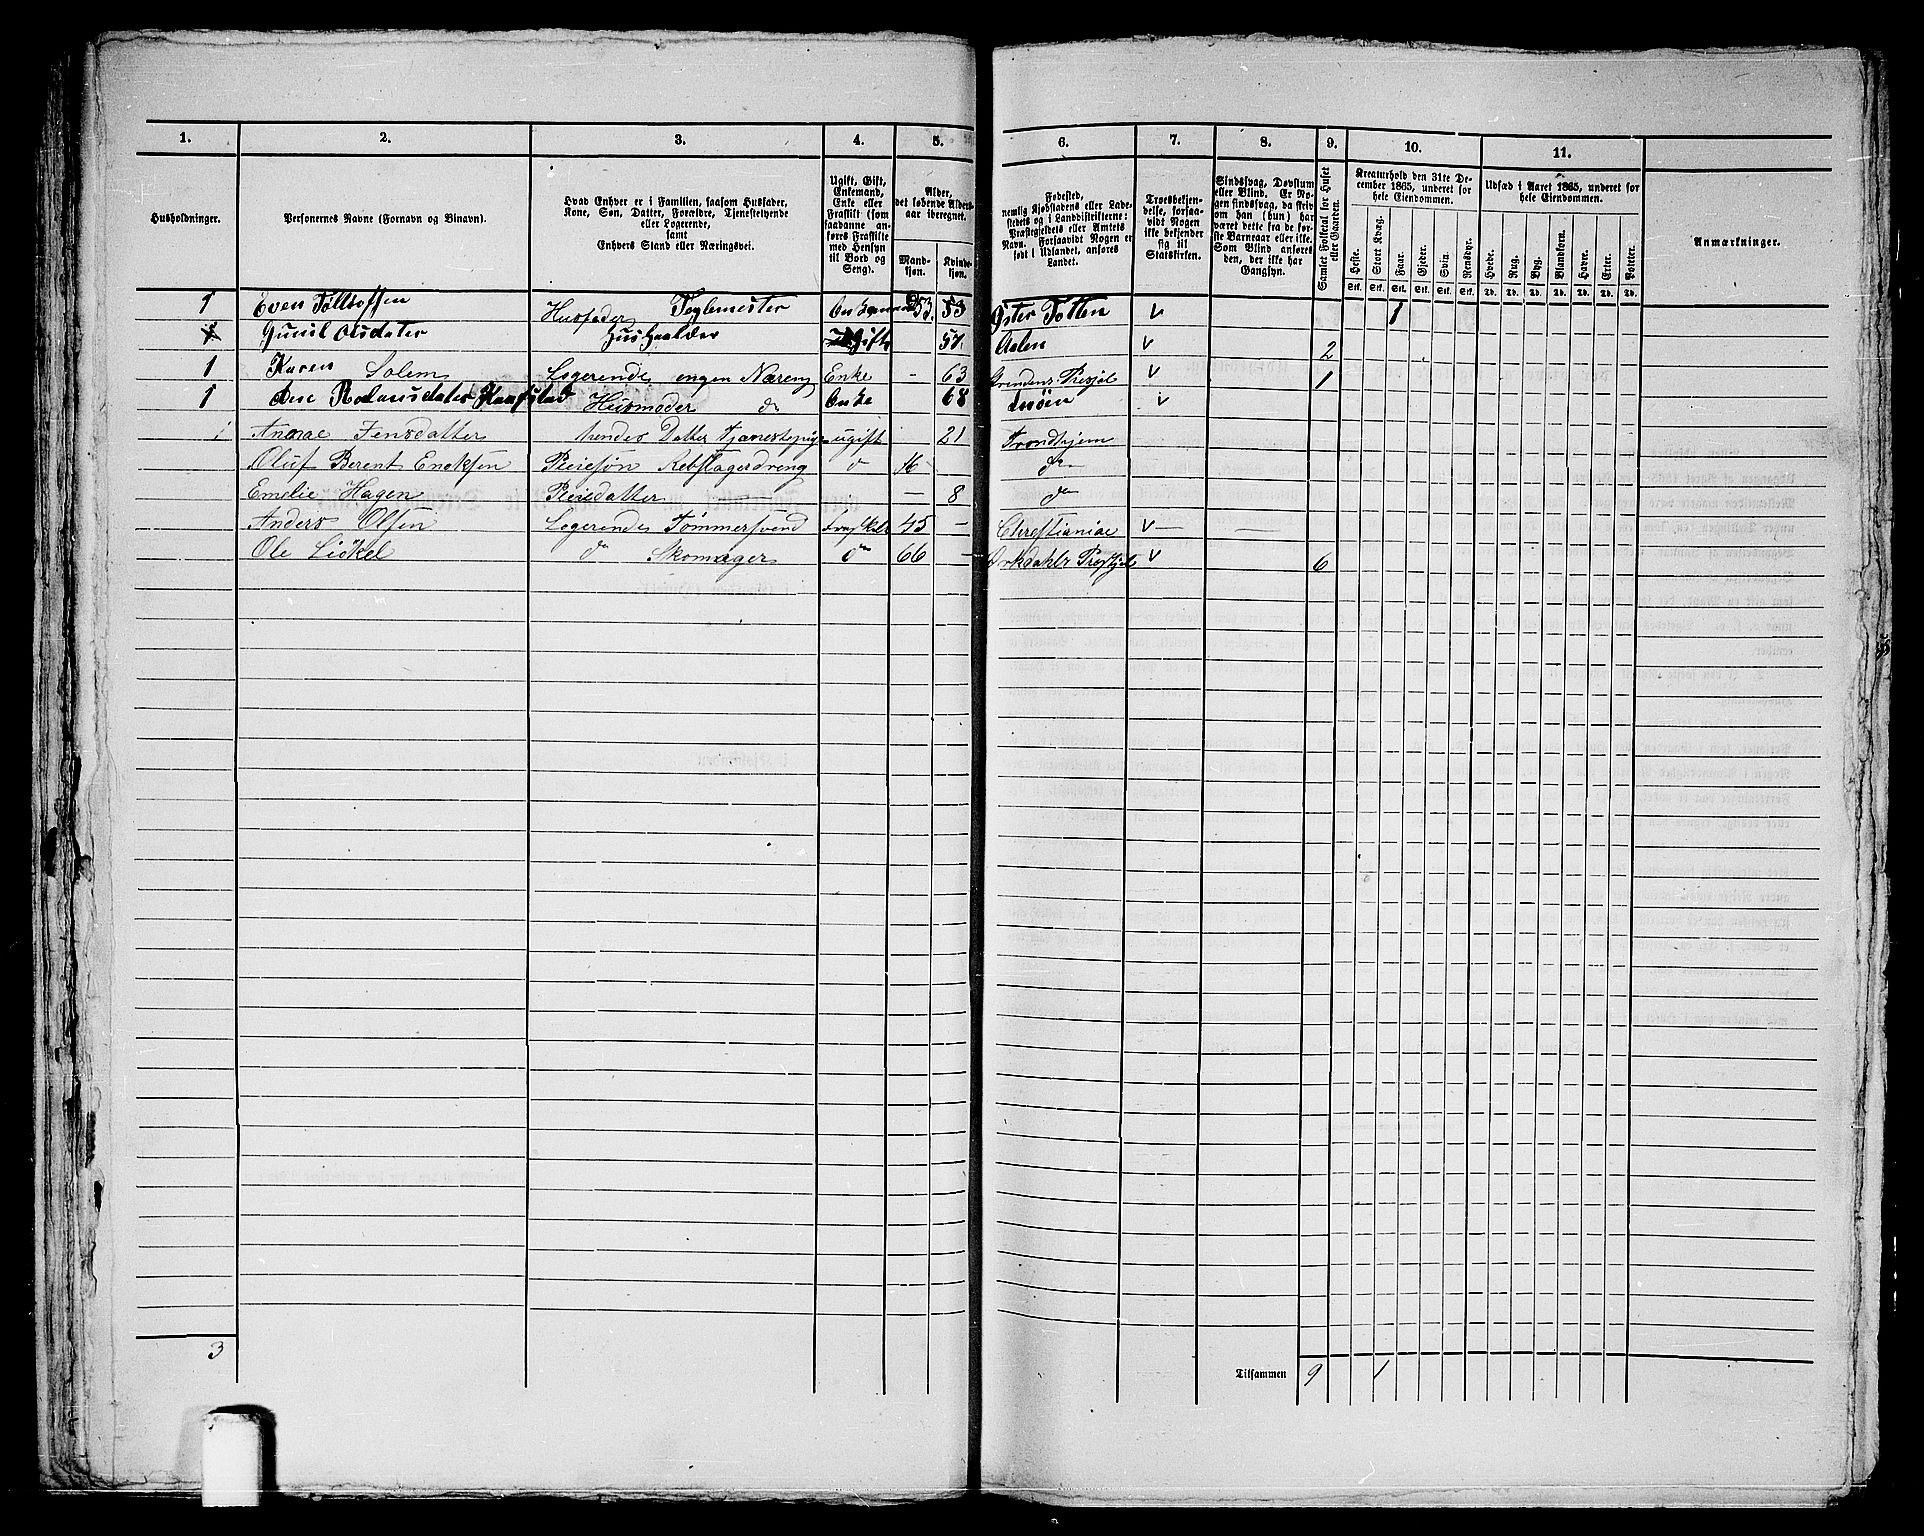 1. 2. 3. 4. 5. 6. 7. 8. 9. 10. 11.
Husholdninger.
Personernes Navne (Fornavn og Binavn).
Hvad Enhver er i Familien, saasom Husfader, Kone, Søn, Datter, Forældre, Tjenestetyende eller Logerende, samt Enhvers Stand eller Næringsvei.
Ugift, Gift, Enkemand, Enke eller Fraskilt (som saadanne anføres Fraskilte med Hensyn til Bord og Seng).
Alder, det løbende Aldersaar iberegnet.
Mandkjøn. Kvindekjøn.
Fødested, nemlig Kjøbstadens eller Ladestedets og i Landdistrikterne: Præstegjeldets eller Amtets Navn. Forsaavidt Nogen er født i Udlandet, anføres Landet.
Troesbekjendelse, forsaavidt Nogen ikke bekjender sig til Statskirken.
Sindssvag, Døvstum eller Blind. Er Nogen sindssvag, da skrives om han (hun) har været dette fra de første Barneaar eller ikke. Som Blind anføres den, der ikke har Gangsyn.
Samlet Folketal for Huset eller Gaarden.
Kreaturhold den 31te December 1865, underet for hele Eiendommen.
Heste. Stort Kvæg. Faar. Gjeder. Svin. Rensdyr.
Stk. Stk. Stk. Stk. Stk. Stk.
Udsæd i Aaret 1865, underet for hele Eiendommen.
Hvede. Rug. Byg. Blandkorn. Havre. Erter. Poteter.
Td. Td. Td. Td. Td. Td. Td.
Anmærkninger.
1 Even Tøllefsen Husfader Teglemester Enkemand 53. 53 Øster Totten v 1
1 Gunil Olsdater Husholder Ugift 57 Aalen v 2
1 Karen Solem Logerende engen Næreng Enke - 63 v 1
1 Husmoder do Enke 68
1 Annae Jensdatter hendes Datter Tjenestepige ugift 21 Trondhjem
Oluf Berent Ericksen Pleiesøn Rebslagerdreng do 16 do
Emelie Hagen Pleiedatter - 8 do
Anders Olsen Logerende Tømmersvend fraskilt 45 - Chrestianiae v
Ole Lickel do Skomager do 66 - Ørkdahls Prestjel v 6
3
Tilsammen 9 1